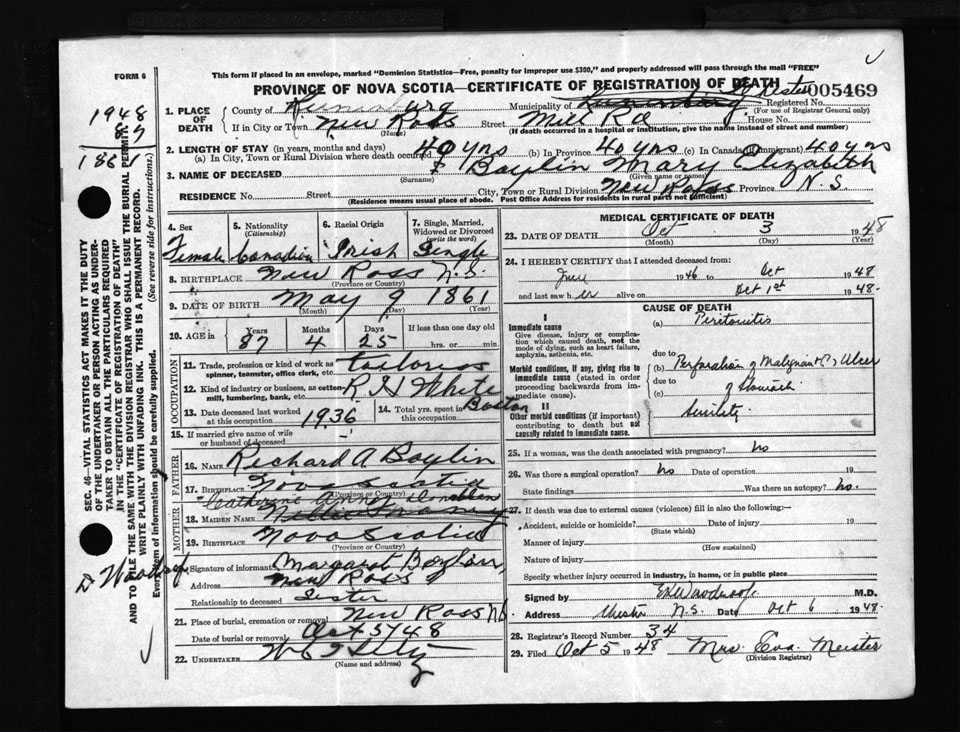 FORM 6
This form if placed in an envelope, marked "Dominion Statistics—Free, penalty for improper use $300," and properly addressed will pass through the mail "FREE"
PROVINCE OF NOVA SCOTIA—CERTIFICATE OF REGISTRATION OF DEATH
005469
Registered No.
(For use of Registrar General only)
1948
87
1861
1. PLACE OF DEATH
County of Lunenburg Municipality of Chester
If in City or Town New Ross Street Mill Rd House No.
(Name) (If death occurred in a hospital or institution, give the name instead of street and number)
2. LENGTH OF STAY (in years, months and days)
(a) In City, Town or Rural Division where death occurred 40 yrs (b) In Province 40 yrs (c) In Canada (if immigrant) 40 yrs
3. NAME OF DECEASED Boylin Mary Elizabeth
(Surname) (Given name or names)
RESIDENCE No. Street City, Town or Rural Division New Ross Province N.S.
(Residence means usual place of abode. Post Office Address for residents in rural parts not sufficient)
4. Sex Female
5. Nationality (Citizenship) Canadian
6. Racial Origin Irish
7. Single, Married, Widowed or Divorced (write the word) Single
8. BIRTHPLACE New Ross N.S.
(Province or Country)
9. DATE OF BIRTH May 9 1861
(Month) (Day) (Year)
10. AGE in Years 87 Months 4 Days 25 If less than one day old
hrs. or min.
OCCUPATION
11. Trade, profession or kind of work as spinner, teamster, office clerk, etc. tailoress
12. Kind of industry or business, as cotton-mill, lumbering, bank, etc. R H White Boston
13. Date deceased last worked at this occupation 1936
14. Total yrs. spent in this occupation
15. If married give name of wife or husband of deceased
FATHER
16. NAME Richard A Boylin
17. BIRTHPLACE Nova Scotia
(Province or Country)
MOTHER
Catherine
18. MAIDEN NAME
19. BIRTHPLACE Nova Scotia
(Province or Country)
20. Signature of informant Margaret
Address New Ross
Relationship to deceased Sister
21. Place of burial, cremation or removal New Ross N.S.
Date of burial or removal Oct 5/48
22. UNDERTAKER
(Name and address)
MEDICAL CERTIFICATE OF DEATH
23. DATE OF DEATH Oct 3 1948
(Month) (Day) (Year)
24. I HEREBY CERTIFY that I attended deceased from
June 1946 to Oct 1948
and last saw her alive on Oct 1st 1948.
CAUSE OF DEATH
I
Immediate cause
Give disease, injury or complication which caused death, not the mode of dying, such as heart failure, asphyxia, asthenia, etc.
(a) Peritonitis
due to
Morbid conditions, if any, giving rise to immediate cause (stated in order proceeding backwards from immediate cause).
(b) Perforation of Malignant (?) Ulcer
due to of Stomach.
(c)
II
Other morbid conditions (if important) contributing to death but not causally related to immediate cause.
Senility.
25. If a woman, was the death associated with pregnancy? no
26. Was there a surgical operation? no Date of operation 19
State findings Was there an autopsy? no.
27. If death was due to external causes (violence) fill in also the following:—
Accident, suicide or homicide? Date of injury 19
(State which)
Manner of injury
(How sustained)
Nature of injury
Specify whether injury occurred in industry, in home, or in public place
Signed by M.D.
Address Chester N.S. Date Oct 6 1948.
28. Registrar's Record Number 34
29. Filed Oct 5 1948 Mrs. Eva Meister
(Division Registrar)
SEC. 46—VITAL STATISTICS ACT MAKES IT THE DUTY
OF THE UNDERTAKER OR PERSON ACTING AS UNDER-
TAKER TO OBTAIN ALL THE PARTICULARS REQUIRED
IN THE "CERTIFICATE OF REGISTRATION OF DEATH"
AND TO FILE THE SAME WITH THE DIVISION REGISTRAR WHO SHALL ISSUE THE BURIAL PERMIT.
WRITE PLAINLY WITH UNFADING INK. THIS IS A PERMANENT RECORD.
Every item of information should be carefully supplied. (See reverse side for instructions.)